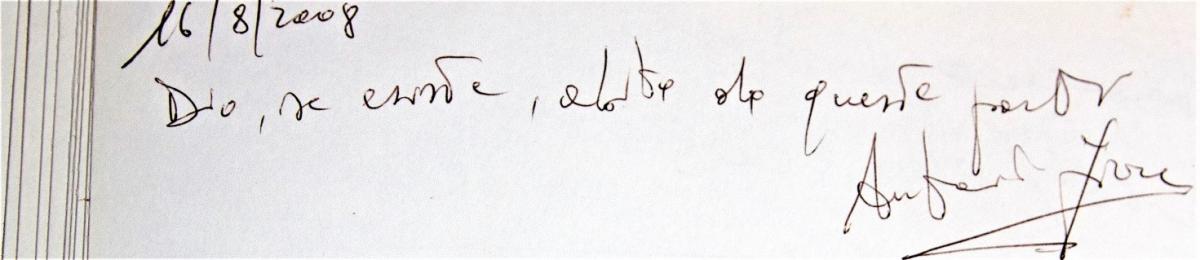 16/8/2008
Dio, se esiste, abita da queste parti